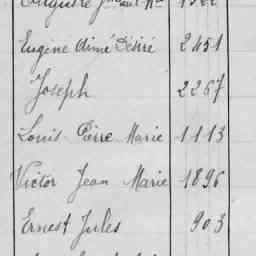 Eugène Aimé Désiré 2451
Joseph 2267
Louis Pierre Marie 1113
Victor Jean Marie 1896
Ernest Jules 903